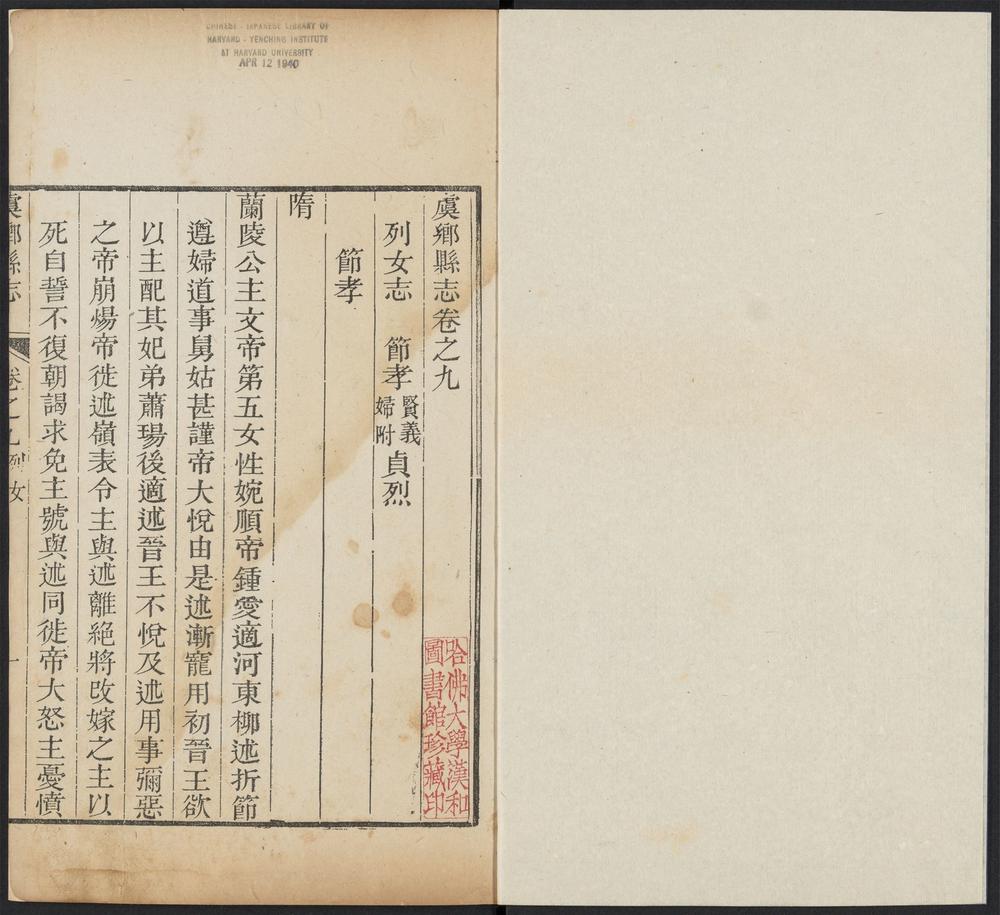 CHINESE - JAPANESE LIBRARY OF
HARVARD - YENCHING INSTITUTE
AT HARVARD UNIVERSITY
APR 12 1940
虞鄉縣志卷之九
列女志　節孝賢義婦附貞烈
節孝
隋
蘭陵公主文帝第五女性婉順帝鍾愛適河東柳述折節
遵婦道事舅姑甚謹帝大悅由是述漸寵用初晉王欲
以主配其妃弟蕭瑒後適述晉王不悅及述用事彌惡
之帝崩煬帝徙述嶺表令主與述離絕將改嫁之主以
死自誓不復朝謁求免主號與述同徙帝大怒主憂憤
虞鄉縣志　卷之九列女　一
哈佛大學漢和
圖書館珍藏印